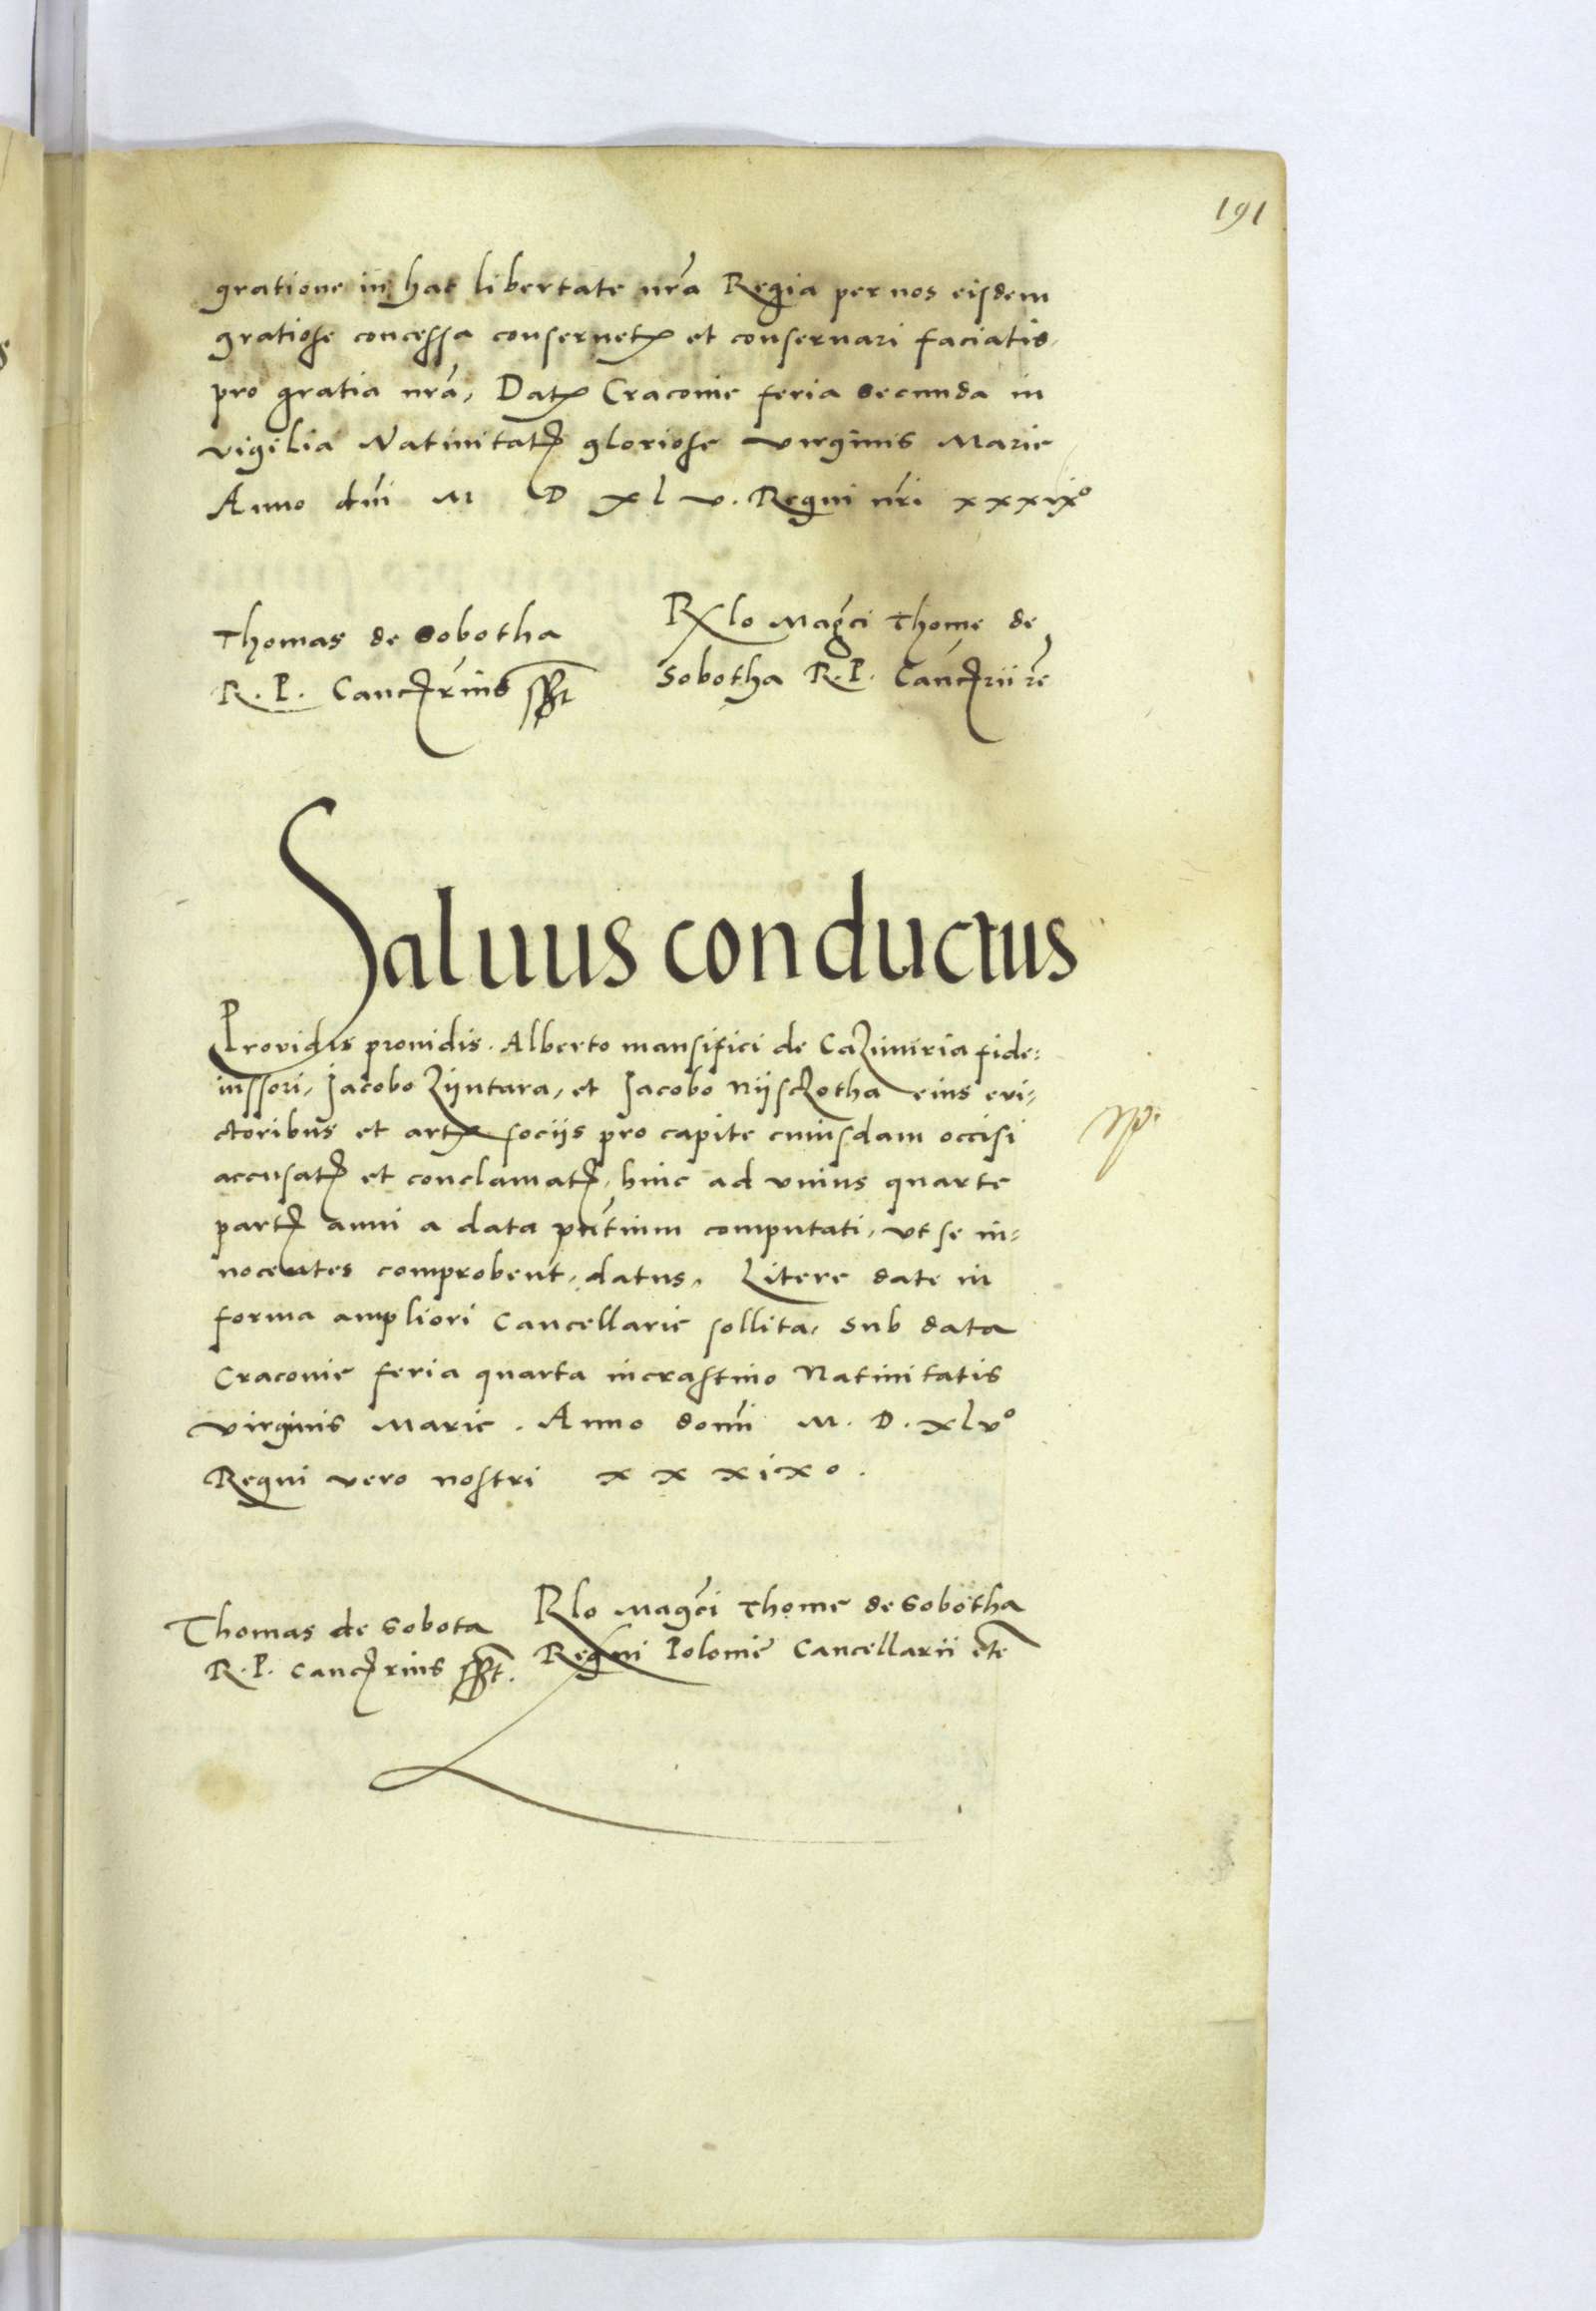 191
gratione in hac libertate nrã Regia per nos eisdem
gratiose concessa conseruetꝭ et conseruari faciatis,
pro gratia nrã, Datꝭ Cracouie feria secunda in
vigilia Natiuitatꝭ gloriose virginis Marie
Anno dni M D xl v. Regni nri xxxix°
Thomas de Sobotha
R. P. Cancꝉrius sspt
Rlo Magci Thome de
Sobotha R. P. Cancꝉrii rc
Saluus conductus
Providis prouidis. Alberto mansifici de Cazimiria fide:
iussori, Jacobo Zijntara, et Jacobo Nijsckotha eius evi,
ctoribus et artꝭ socijs pro capite cuiusdam occisi
accusatꝭ et conclamatꝭ, hinc ad vnius quarte
partꝭ anni a data pntium computati, vt se in:
nocentes comprobent, datus, Litere date in
forma ampliori Cancellarie sollita, sub data
Cracouie feria quarta incrastino Natiuitatis
virginis Marie. Anno domi M. D. xlv°
Regni vero nostri x x xixo.
Thomas de Sobota
R. P. Cancꝉrius sspt.
Rlo Magci Thome de Sobotha
Regni Polonie Cancellarii etc